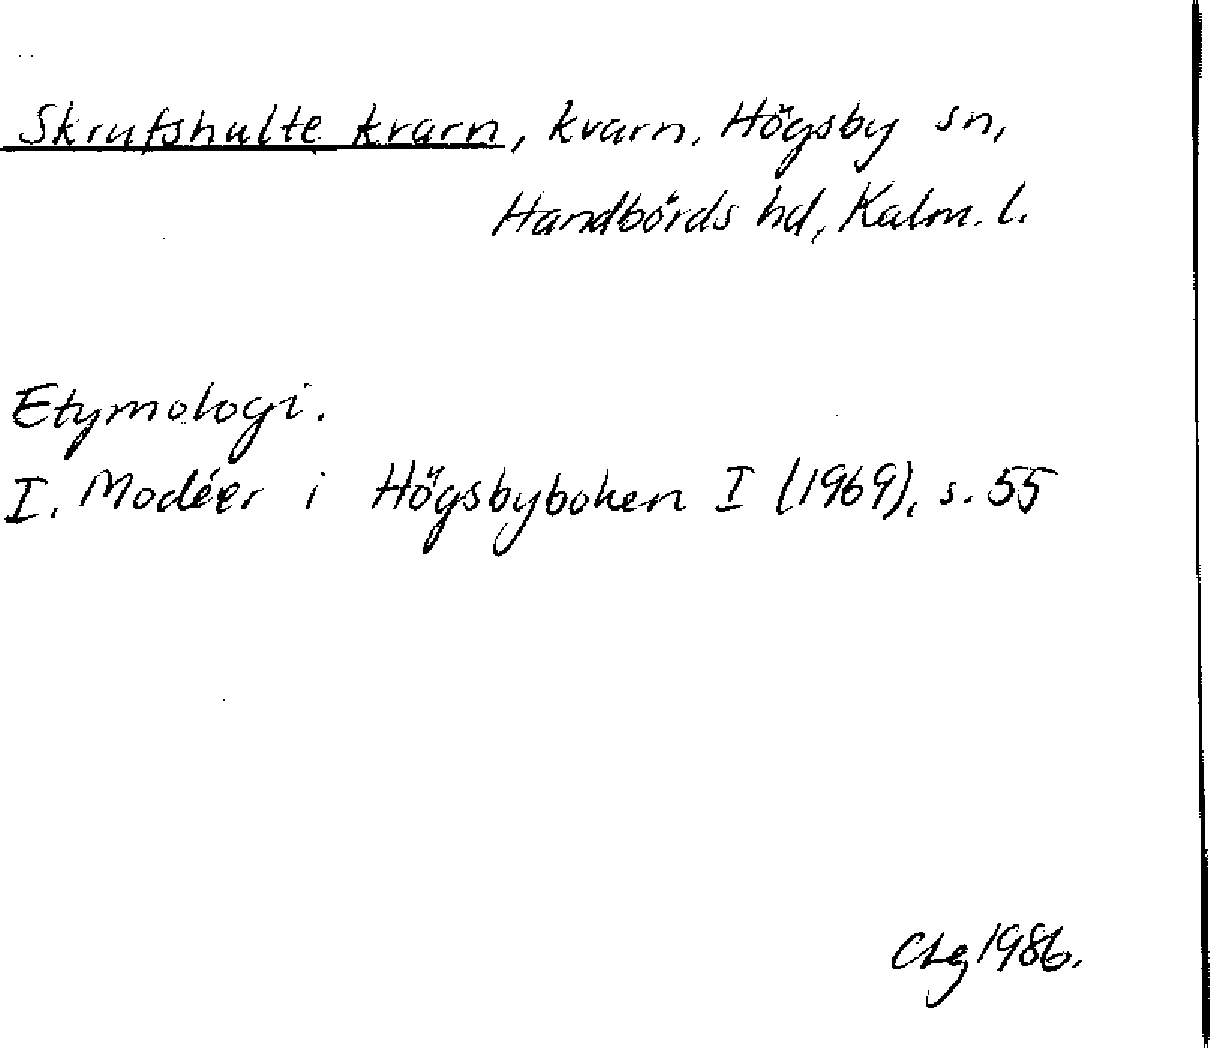 Skrufshulte kvarn, kvarn, Högsby sn,
Handbörds hd, Kalm. l.
Etymologi.
I. Modéer i Högsbyboken I (1969), s. 55
CLg 1986.